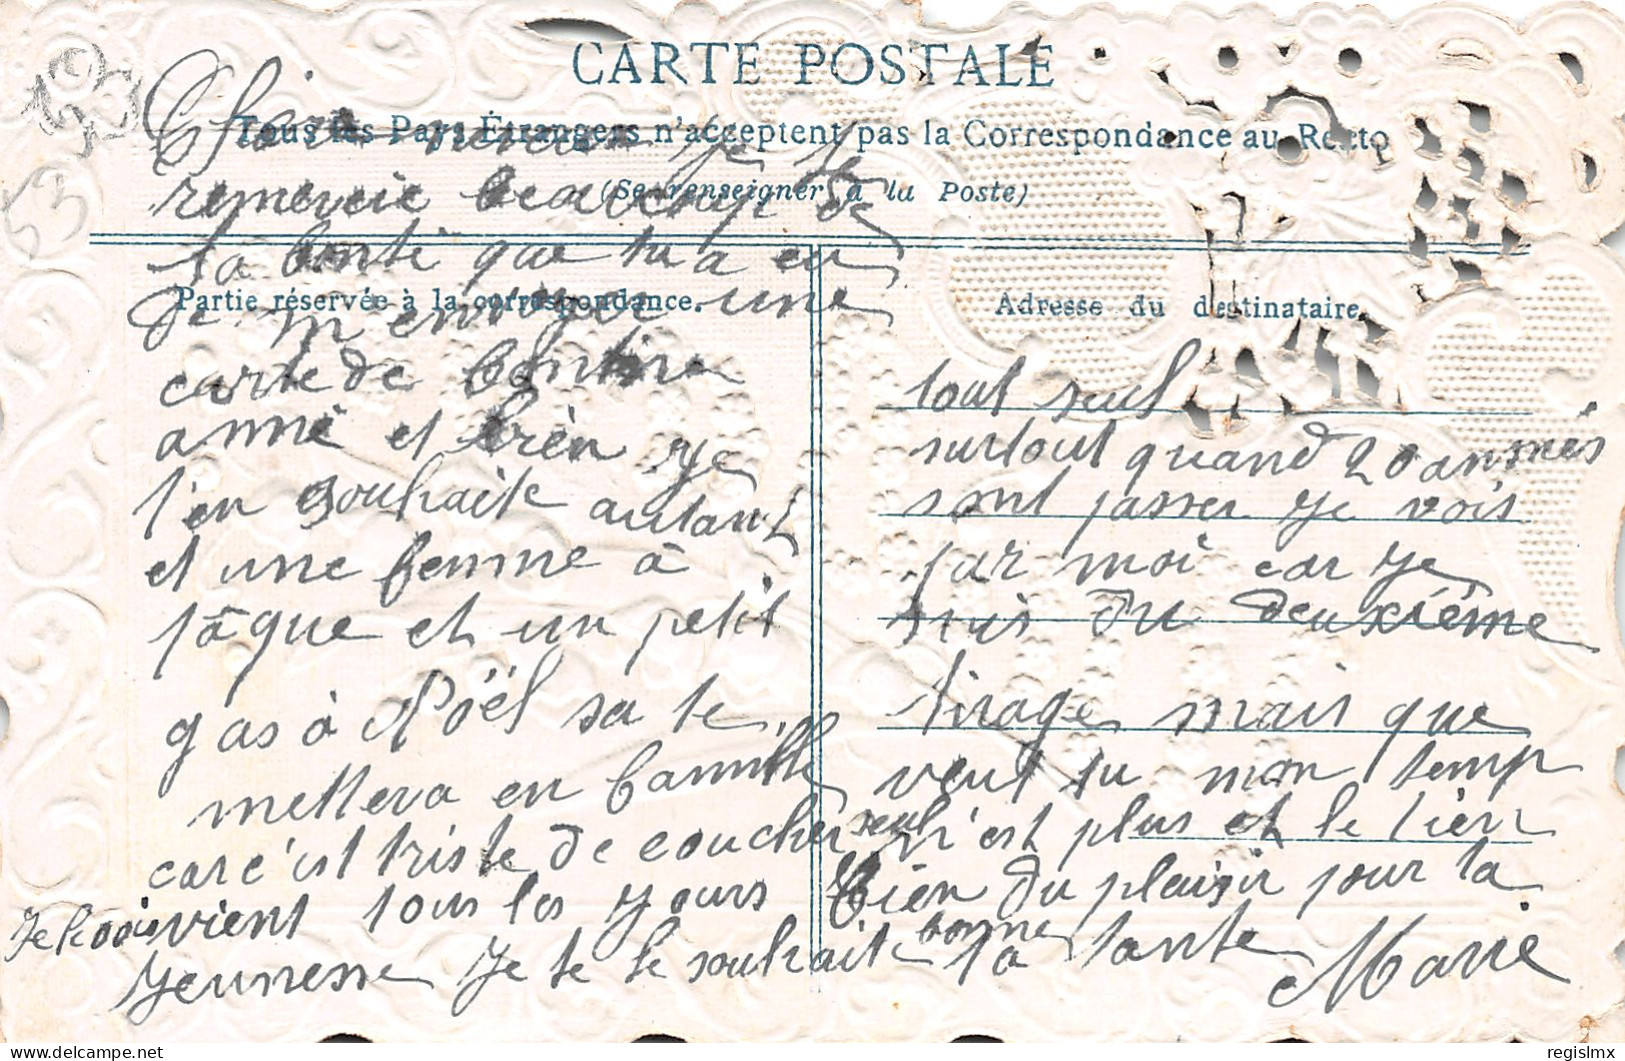 CARTE POSTALE
Tous les Pays Étrangers n'acceptent pas la Correspondance au Recto
(Se renseigner à la Poste)
Partie réservée à la correspondance.
Adresse du destinataire.
13
53
Cher neveu je te
remercie beaucoup de
ta bonté que tu a eu
de m envoyer une
carte de bontine
anné et bièn je
t'en souhaite autant
et une femme à
pâque et un petit
gas à Noël sa te
mettera en famille
car c'est triste de coucher seul
Je le vois vient tous les jours
jeunesse je te le souhaite
tout seul
surtout quand 20 annés
sont passer je vois
par moi car je
suis du deuxième
tirage mais que
veut tu mon temp
n'est plus et le tien
bien du plaisir pour la
bonne
ta tante Marie
delcampe.net
regislmx